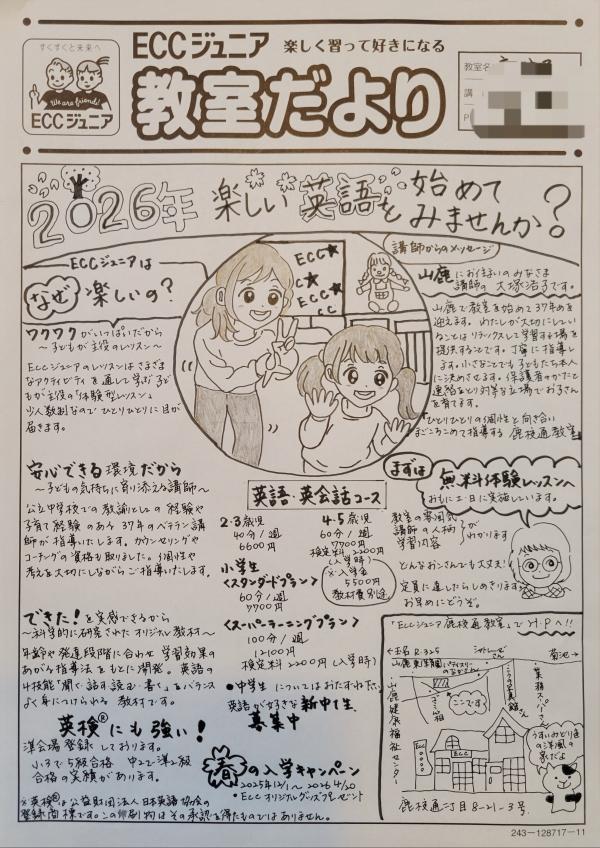 すくすくと未来へ
We are friend!
ECCジュニア
ECCジュニア 楽しく習って好きになる
教室だより
教室名
講
P
2026年 楽しい英語を始めてみませんか?
ECCジュニアは
なぜ楽しいの?
ワクワクがいっぱいだから
～子どもが主役のレッスン～
ECCジュニアのレッスンはさまざま
なアクティビティを通して学ぶ子ど
もが主役の「体験型レッスン」
少人数制なのでひとりひとりに目が
届きます。
ECC
C
ECC
CC
講師からのメッセージ
山鹿にお住いのみなさま
講師の大塚浩子です。
山鹿で教室を始めて37年めを
迎えます。わたしが大切にしてい
ることはリラックスして学習する場を
提供することです。丁寧に指導し
ます。小さなことでも子どもたち本人
に決めさせます。保護者のかたと
連絡をとり対等な立場でお子さん
を育てます。
ひとりひとりの個性と向き合い
まごころこめて指導する 鹿校通教室
安心できる環境だから
～子どもの気持ちに寄り添える講師～
公立中学校での教諭としての経験や
子育て経験のある37年のベテラン講
師が指導いたします。カウンセリングや
コーチングの資格も取りました。個性や
考えを大切にしながらご指導いたします。
できた!を実感できるから
～科学的に研究されたオリジナル教材～
年齢や発達段階に合わせ学習効果の
あがる指導法をもとに開発。英語の
4技能「聞く・話す・読む・書く」をバランス
よく身につけられる教材です。
英検®にも強い!
準会場登録しております。
小3で5級合格 中2で準2級
合格の実績があります。
※英検®は公益財団法人日本英語協会の
登録商標です。この印刷物はその承認を得たものではありません。
英語・英会話コース
2・3歳児
40分/週
6600円
4・5歳児
60分/週
7700円
検定料2200円
(入学時)
※入学金
5500円
教材費別途
小学生
<スタンダードプラン>
60分/週
7700円
<スーパーラーニングプラン>
100分/週
12100円
検定料2200円(入学時)
●中学生についてはおたずね下さい
英語が好きな新中1生
募集中
春の入学キャンペーン
2025年12/1～2026 4/20
●ECCオリジナルグッズプレゼント
まずは
無料体験レッスンへ
おもに土・日に実施しています。
教室の雰囲気
講師の人柄
学習内容
がわかります
どんなおこさんでも大丈夫!
定員に達したらしめきります
お早めにどうぞ。
「ECCジュニア鹿校通教室」でH・Pへ!!
←玉名 R.325
菊池→
山鹿東保育園
ここです
業務スーパーさん
山鹿健康福祉センター
ECC
うすいみどり色
の洋風の
家だよ
鹿校通二丁目8-21-3号
243-128717-11